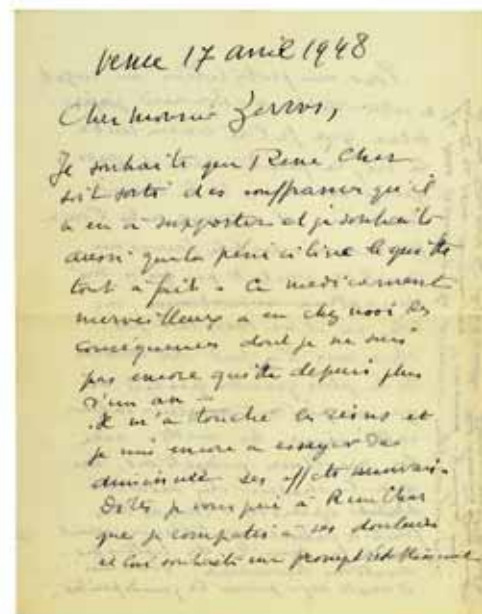 Vence 17 avril 1948
Cher monsieur Zervos,
Je souhaite que René Char
soit sorti des souffrances qu'il
a eu à supporter et je souhaite
aussi que la péniciline le quitte
tout à fait. Ce medicament
merveilleux a eu chez moi des
conséquences dont je ne suis
pas encore quitte depuis plus
d'un an —
Il m'a touché les reins et
je suis encore a essayer de
diminuer ses effets mauvais.
Dites je vous prie à René Char
que je compatis à ses douleurs
et lui souhaite un prompt rétablissement